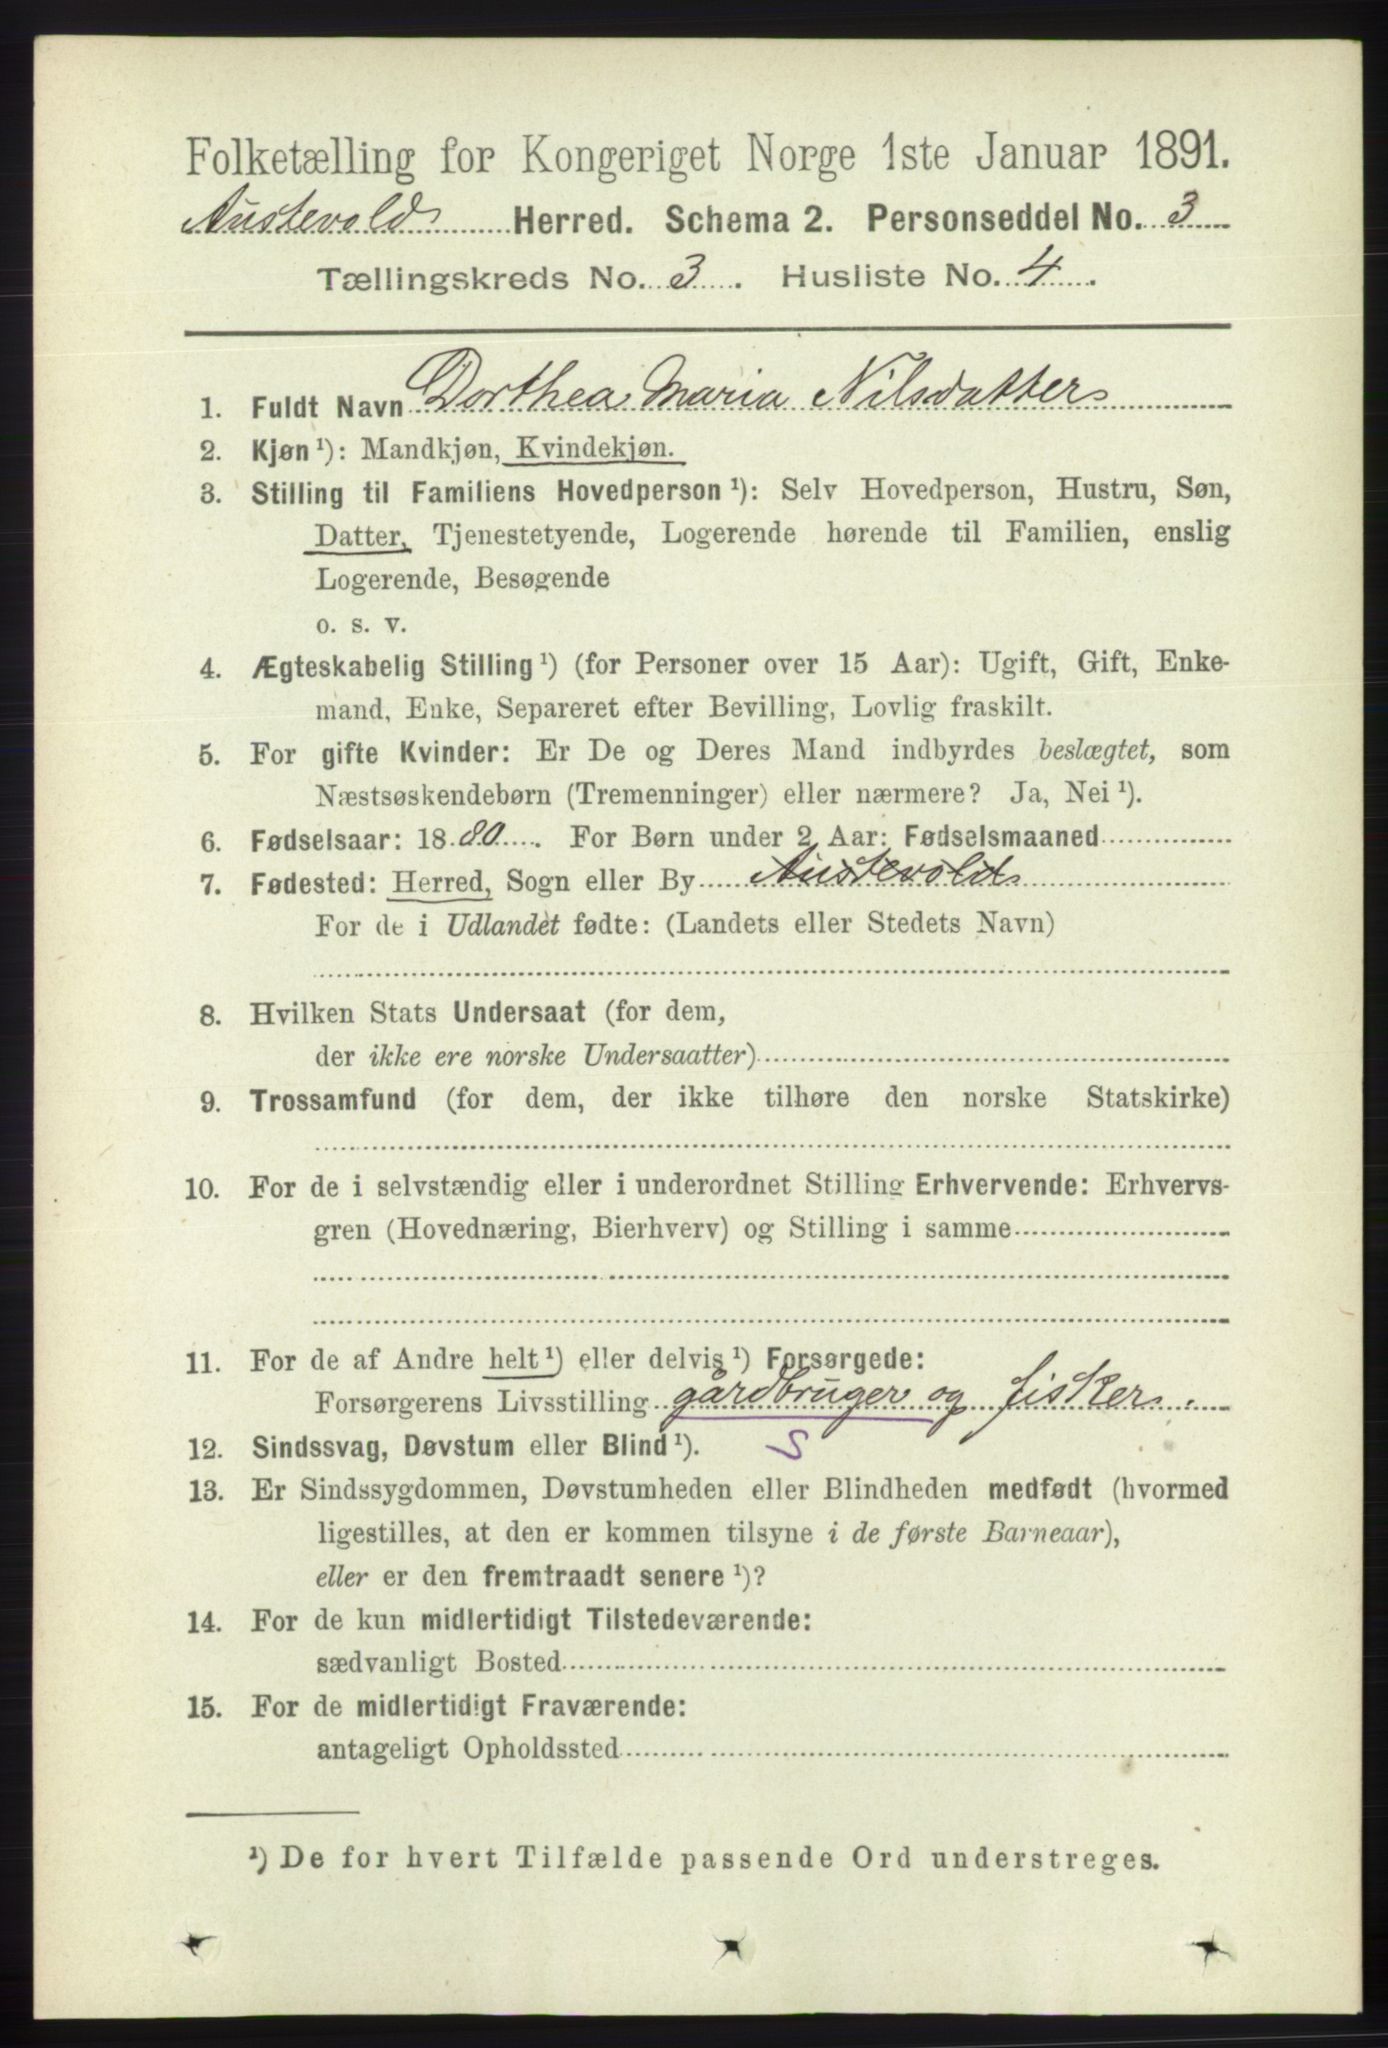 Folketælling for Kongeriget Norge 1ste Januar 1891.
Austevold Herred. Schema 2. Personseddel No. 3
Tællingskreds No. 3. Husliste No. 4.
1. Fuldt Navn Dorthea Maria Nilsdatter
2. Kjøn ¹): Mandkjøn, Kvindekjøn.
3. Stilling til Familiens Hovedperson ¹): Selv Hovedperson, Hustru, Søn,
Datter, Tjenestetyende, Logerende hørende til Familien, enslig
Logerende, Besøgende
o. s. v.
4. Ægteskabelig Stilling ¹) (for Personer over 15 Aar): Ugift, Gift, Enke-
mand, Enke, Separeret efter Bevilling, Lovlig fraskilt.
5. For gifte Kvinder: Er De og Deres Mand indbyrdes beslægtet, som
Næstsøskendebørn (Tremenninger) eller nærmere? Ja, Nei ¹).
6. Fødselsaar: 1880. For Børn under 2 Aar: Fødselsmaaned
7. Fødested: Herred, Sogn eller By Austevold
For de i Udlandet fødte: (Landets eller Stedets Navn)
8. Hvilken Stats Undersaat (for dem,
der ikke ere norske Undersaatter)
9. Trossamfund (for dem, der ikke tilhøre den norske Statskirke)
10. For de i selvstændig eller i underordnet Stilling Erhvervende: Erhvervs-
gren (Hovednæring, Bierhverv) og Stilling i samme
11. For de af Andre helt ¹) eller delvis ¹) Forsørgede:
Forsørgerens Livsstilling gårdbruger og fisker.
12. Sindssvag, Døvstum eller Blind ¹). S
13. Er Sindssygdommen, Døvstumheden eller Blindheden medfødt (hvormed
ligestilles, at den er kommen tilsyne i de første Barneaar),
eller er den fremtraadt senere ¹)?
14. For de kun midlertidigt Tilstedeværende:
sædvanligt Bosted
15. For de midlertidigt Fraværende:
antageligt Opholdssted
¹) De for hvert Tilfælde passende Ord understreges.